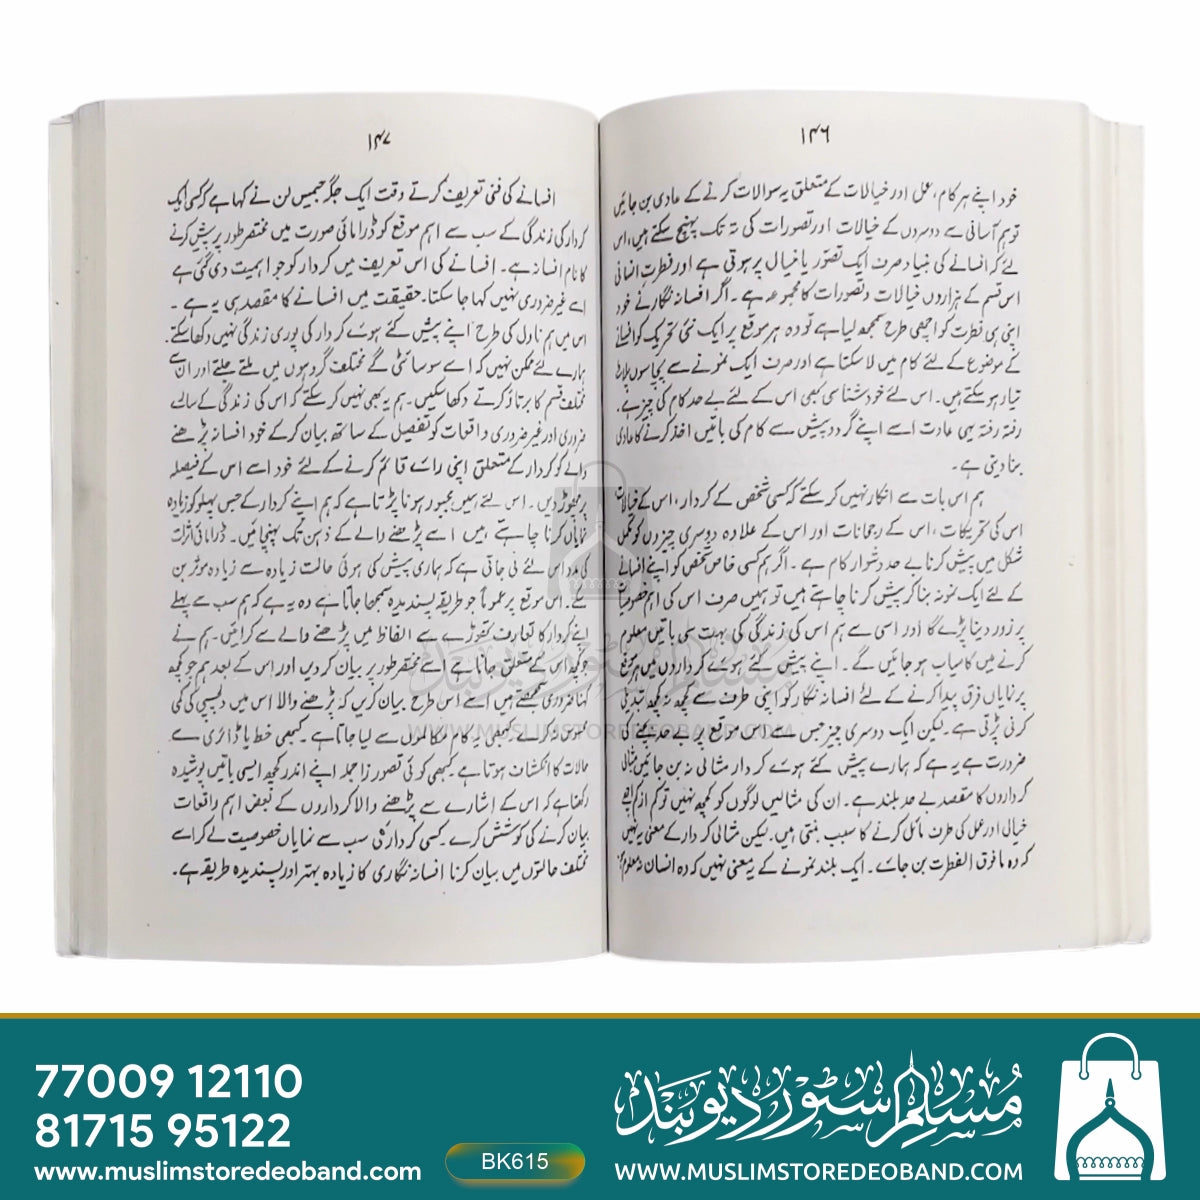 ۱۴۶
خود اپنے ہر کام، عمل اور خیالات کے متعلق یہ سوالات کرنے کے عادی بن جائیں
تو ہم آسانی سے دوسروں کے خیالات اور تصورات کی تہ تک پہنچ سکتے ہیں، اس
لئے کہ افسانے کی بنیاد صرف ایک تصوّر یا خیال پر ہوتی ہے اور فطرت انسانی
اس قسم کے ہزاروں خیالات و تصورات کا مجموعہ ہے۔ اگر افسانہ نگار نے خود
اپنی ہی فطرت کو اچھی طرح سمجھ لیا ہے تو وہ ہر موقع پر ایک نئی تحریک کو افسانے
کے موضوع کے لئے کام میں لا سکتا ہے اور صرف ایک نمونے سے پچاسوں پلاٹ
تیار ہو سکتے ہیں۔ اس لئے خود شناسی بھی اس کے لئے بے حد کام کی چیز ہے۔
رفتہ رفتہ یہی عادت اسے اپنے گرد و پیش سے کام کی باتیں اخذ کرنے کا عادی
بنا دیتی ہے۔
ہم اس بات سے انکار نہیں کر سکتے کہ کسی شخص کے کردار، اس کے خیالات
اس کی تحریکات، اس کے رجحانات اور اس کے علاوہ دوسری چیزوں کو مکمل
شکل میں پیش کرنا بے حد دشوار کام ہے۔ اگر ہم کسی خاص شخص کو اپنے افسانے
کے لئے ایک نمونہ بنا کر پیش کرنا چاہتے ہیں تو ہمیں صرف اس کی اہم خصوصیات
پر زور دینا پڑے گا اور اسی سے ہم اس کی زندگی کی بہت سی باتیں معلوم
کرنے میں کامیاب ہو جائیں گے۔ اپنے پیش کئے ہوئے کرداروں میں ہر موقع
پر نمایاں فرق پیدا کرنے کے لئے افسانہ نگار کو اپنی طرف سے کچھ نہ کچھ تبدیلی
کرنی پڑتی ہے۔ لیکن ایک دوسری چیز جس سے اس موقع پر بے حد بچنے کی
ضرورت ہے یہ ہے کہ ہمارے پیش کئے ہوئے کردار مثالی نہ بن جائیں مثالی
کرداروں کا مقصد بے حد بلند ہے۔ ان کی مثالیں لوگوں کو کچھ نہیں تو کم از کم اچھے
خیالی اور عمل کی طرف مائل کرنے کا سبب بنتی ہیں۔ لیکن مثالی کردار کے معنی یہ نہیں
کہ وہ مافوق الفطرت بن جائے۔ ایک بلند نمونے کے یہ معنی نہیں کہ وہ انسان نہ معلوم ہو
۱۴۷
افسانے کی فنی تعریف کرتے وقت ایک جگہ جیمس لن نے کہا ہے کہ کسی ایک
کردار کی زندگی کے سب سے اہم موقع کو ڈرامائی صورت میں مختصر طور پر پیش کرنے
کا نام افسانہ ہے۔ افسانے کی اس تعریف میں کردار کو جو اہمیت دی گئی ہے
اسے غیر ضروری نہیں کہا جا سکتا۔ حقیقت میں افسانے کا مقصد ہی یہ ہے۔
اس میں ہم ناول کی طرح اپنے پیش کئے ہوئے کردار کی پوری زندگی نہیں دکھا سکتے۔
ہمارے لئے ممکن نہیں کہ اسے سوسائٹی کے مختلف گروہوں میں ملتے جلتے اور ان سے
مختلف قسم کا برتاؤ کرتے دکھا سکیں۔ ہم یہ بھی نہیں کر سکتے کہ اس کی زندگی کے سارے
ضروری اور غیر ضروری واقعات کو تفصیل کے ساتھ بیان کر کے خود افسانہ پڑھنے
والے کو کردار کے متعلق اپنی رائے قائم کرنے کے لئے خود اسے اس کے فیصلہ
پر چھوڑ دیں۔ اس لئے ہمیں مجبور ہونا پڑتا ہے کہ ہم اپنے کردار کے جس پہلو کو زیادہ
نمایاں کرنا چاہتے ہیں اسے پڑھنے والے کے ذہن تک پہنچائیں۔ ڈرامائی اثرات
کی مدد اس لئے لی جاتی ہے کہ ہماری پیش کی ہوئی حالت زیادہ سے زیادہ موثر بن
سکے۔ اس موقع پر عموماً جو طریقہ پسندیدہ سمجھا جاتا ہے وہ یہ ہے کہ ہم سب سے پہلے
اپنے کردار کا تعارف تھوڑے سے الفاظ میں پڑھنے والے سے کرائیں۔ ہم نے
جو کچھ اس کے متعلق جانا ہے اسے مختصر طور پر بیان کر دیں اور اس کے بعد ہم جو کچھ
کہنا ضروری سمجھتے ہیں اسے اس طرح بیان کریں کہ پڑھنے والا اس میں دلچسپی کی کمی
محسوس نہ کرے کبھی یہ کام مکالموں سے لیا جاتا ہے۔ کبھی خط یا ڈائری سے
حالات کا انکشاف ہوتا ہے۔ کبھی کوئی تصور زا جملہ اپنے اندر کچھ ایسی باتیں پوشیدہ
رکھتا ہے کہ اس کے اشارے سے پڑھنے والا کرداروں کے بعض اہم واقعات
بیان کرنے کی کوشش کرے۔ کسی کردار کی سب سے نمایاں خصوصیت لے کر اسے
مختلف حالتوں میں بیان کرنا افسانہ نگاری کا زیادہ بہتر اور پسندیدہ طریقہ ہے۔
مسلم سٹور دیوبند
WWW.MUSLIMSTOREDEOBAND.COM
77009 12110
81715 95122
www.muslimstoredeoband.com
BK615
مسلم سٹور دیوبند
WWW.MUSLIMSTOREDEOBAND.COM